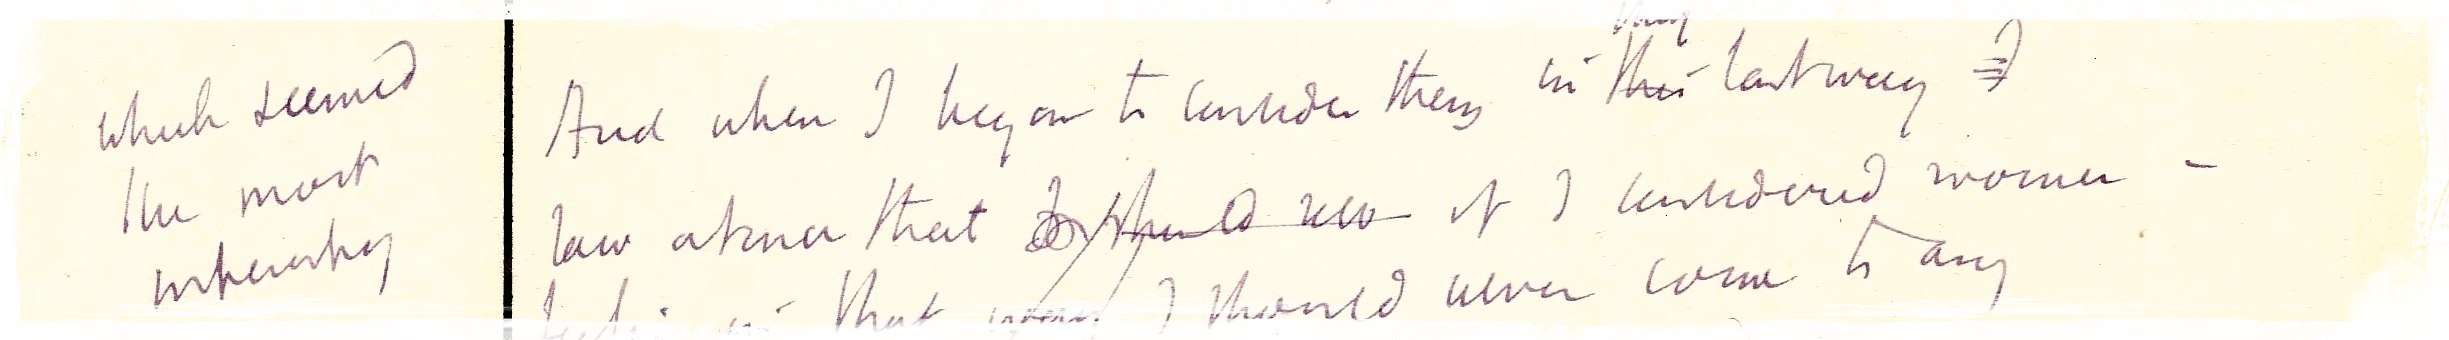 which seemed
the most
interesting
And when I began to consider them in this last way I
saw at once that I should nev if I considered women -
in that way I should never come to any